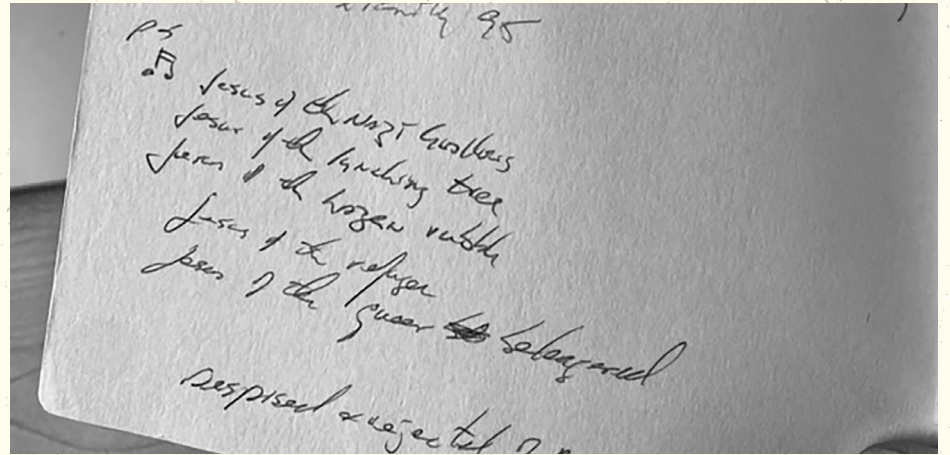 95
ps
♫ Jesus of the Nazi
Jesus of the lynching tree
Jesus of the rubble
Jesus of the refugee
Jesus of the queer beleaguered
Despised & rejected